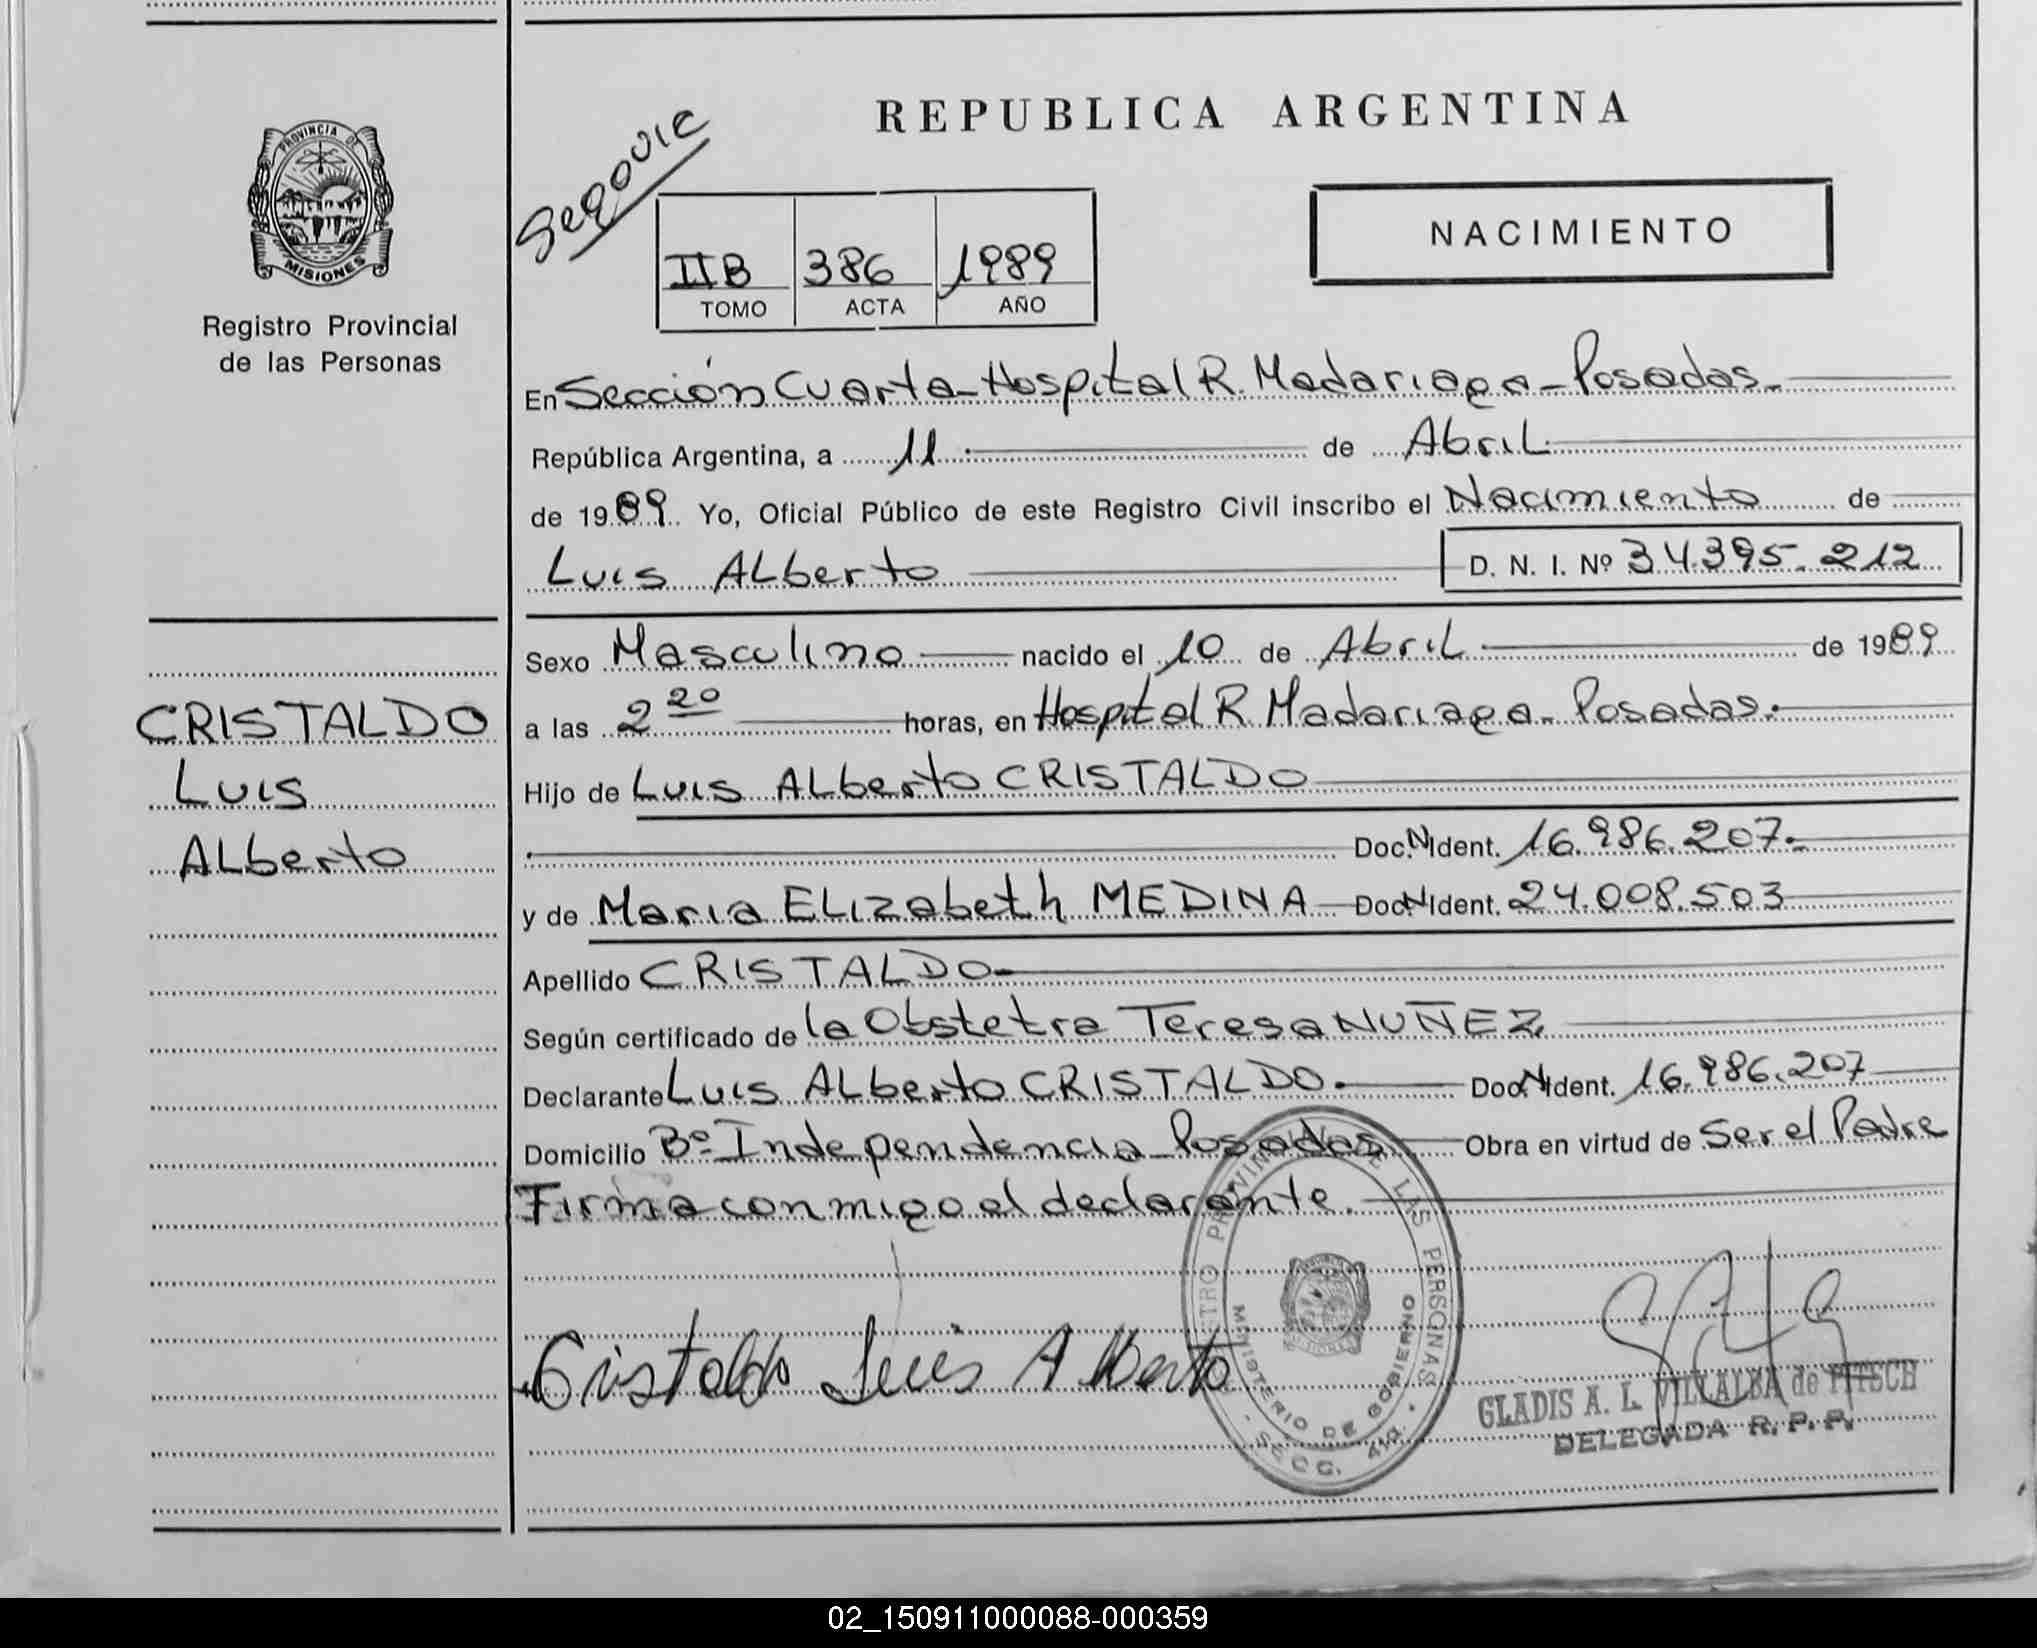 PROVINCIA DE
MISIONES
Registro Provincial
de las Personas
CRISTALDO
Luis
Alberto
REPUBLICA ARGENTINA
Segovia
NACIMIENTO
IIB 386 1989
TOMO ACTA AÑO
En Sección Cuarta - Hospital R. Madariaga - Posadas.
República Argentina, a 11 de Abril
de 1989. Yo, Oficial Público de este Registro Civil inscribo el Nacimiento de
Luis Alberto D. N. I. Nº 34.395.212
Sexo Masculino nacido el 10 de Abril de 1989
a las 2 20 horas, en Hospital R. Madariaga - Posadas.
Hijo de Luis Alberto CRISTALDO
Doc. N Ident. 16.986.207.-
y de Maria Elizabeth MEDINA Doc. N Ident. 24.008.503
Apellido CRISTALDO
Según certificado de la Obstetra Teresa NUÑEZ
Declarante Luis Alberto CRISTALDO. Doc. N Ident. 16.986.207
Domicilio Bº Independencia - Posadas Obra en virtud de Ser el Padre
Firma conmigo el declarante.
Cristaldo Luis Alberto
PROVINCIAL DE LAS PERSONAS
MINISTERIO DE GOBIERNO
SECC. 4ta.
GLADIS A. L. VILLALBA de
DELEGADA R. P. P.
02_150911000088-000359